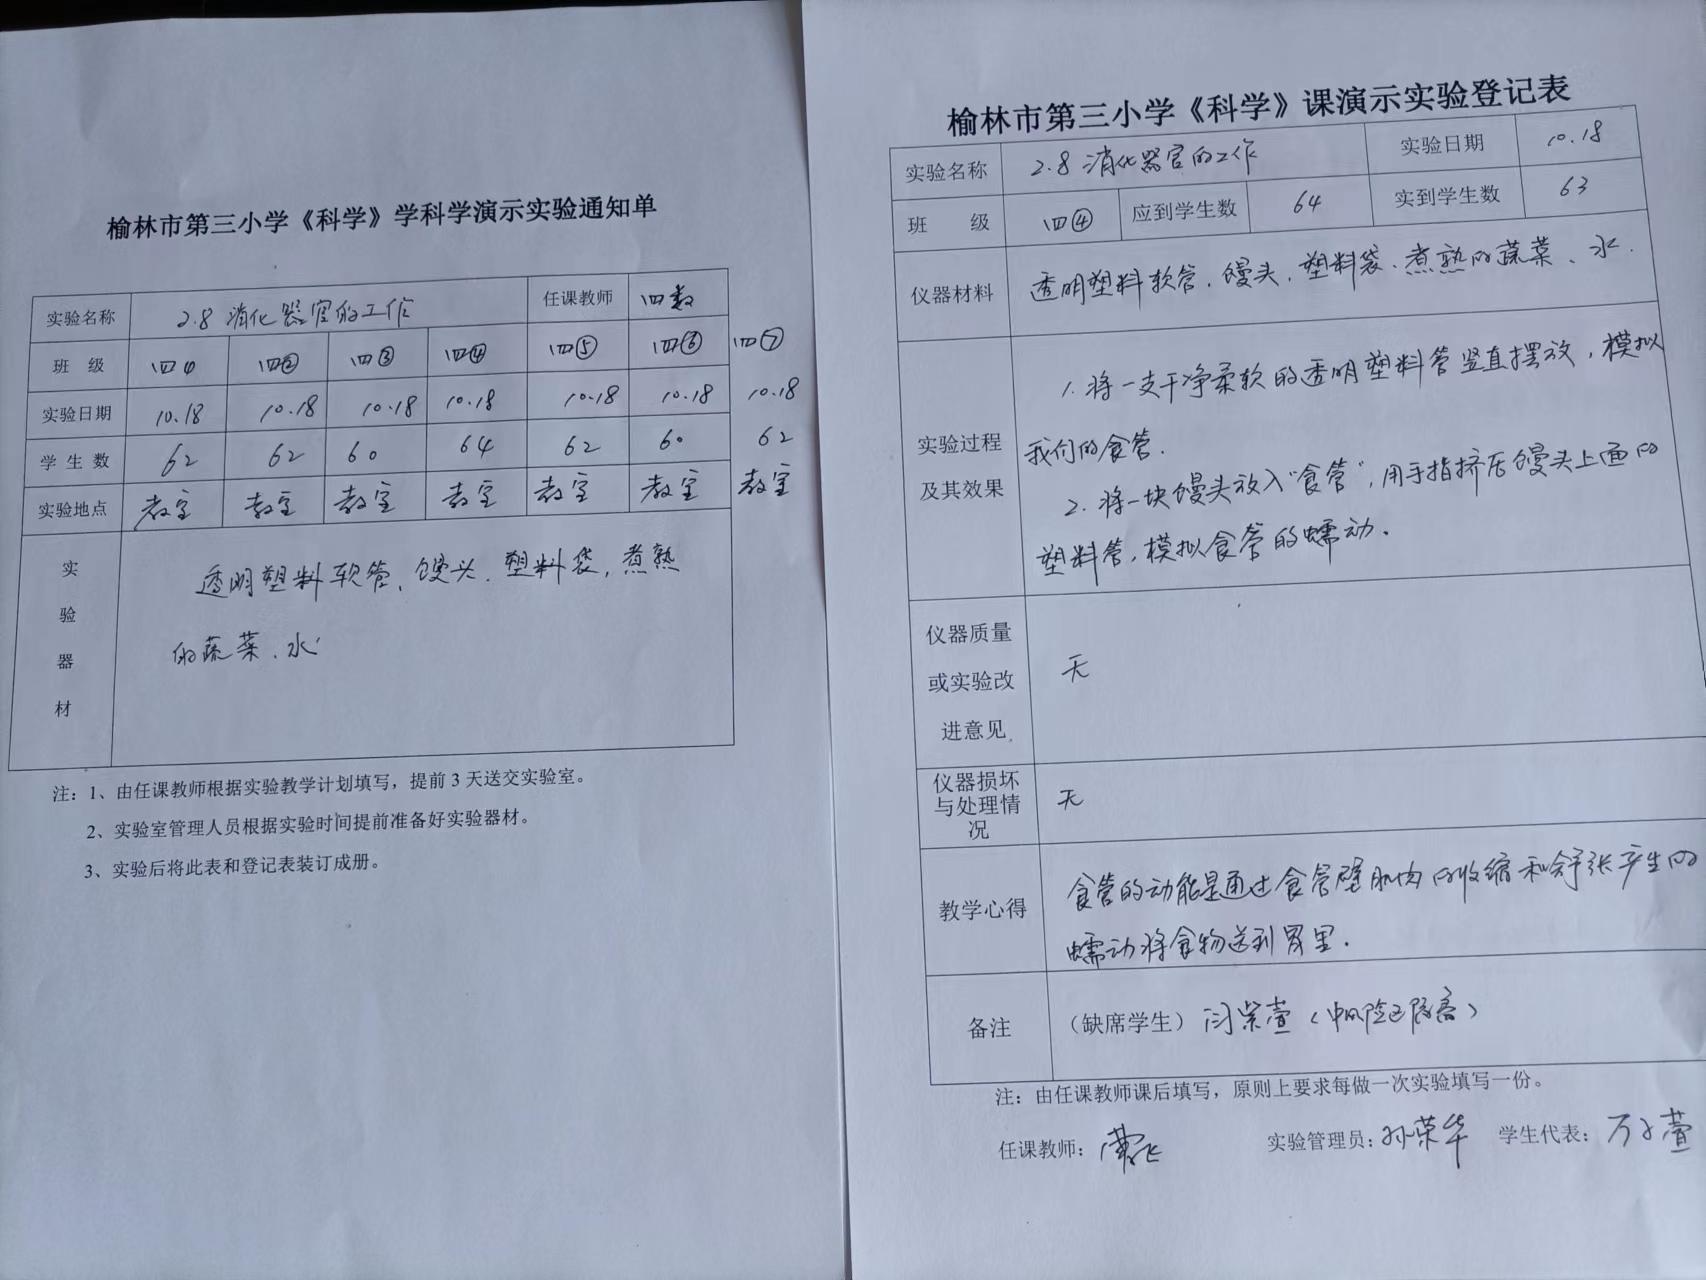 榆林市第三小学《科学》学科学演示实验通知单
实验名称 2.8 消化器官的工作 任课教师
班 级 四① 四② 四③ 四④ 四⑤ 四⑥ 四⑦
实验日期 10.18 10.18 10.18 10.18 10.18 10.18 10.18
学生数 62 62 60 64 62 60 62
实验地点 教室 教室 教室 教室 教室 教室 教室
实验器材
透明塑料软管、馒头、塑料袋,煮熟
的蔬菜、水
注:1、由任课教师根据实验教学计划填写,提前 3 天送交实验室。
2、实验室管理人员根据实验时间提前准备好实验器材。
3、实验后将此表和登记表装订成册。
榆林市第三小学《科学》课演示实验登记表
实验名称 2.8 消化器官的工作 实验日期 10.18
班 级 四④ 应到学生数 64 实到学生数 63
仪器材料 透明塑料软管、馒头、塑料袋、煮熟的蔬菜、水.
实验过程
及其效果
1. 将一支干净柔软的透明塑料管竖直摆放,模拟
我们的食管.
2. 将一块馒头放入“食管”,用手指挤压馒头上面的
塑料管,模拟食管的蠕动.
仪器质量
或实验改
进意见
无
仪器损坏
与处理情
况
无
教学心得
食管的动能是通过食管壁肌肉的收缩和舒张产生的
蠕动将食物送到胃里.
备注 (缺席学生) 闫紫萱(中风险区隔离)
注:由任课教师课后填写,原则上要求每做一次实验填写一份。
任课教师: 实验管理员:孙荣华 学生代表:万子萱